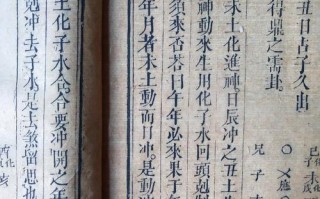 丑日占子久出
得鼎之需卦
土化進神日辰冲之丑土
神動來生用化子水回頭剋制
須來否若日午年必來果于午
年月者未土動而日冲是
土化子水合合要冲開之年
剋冲去子水是去煞留恩也